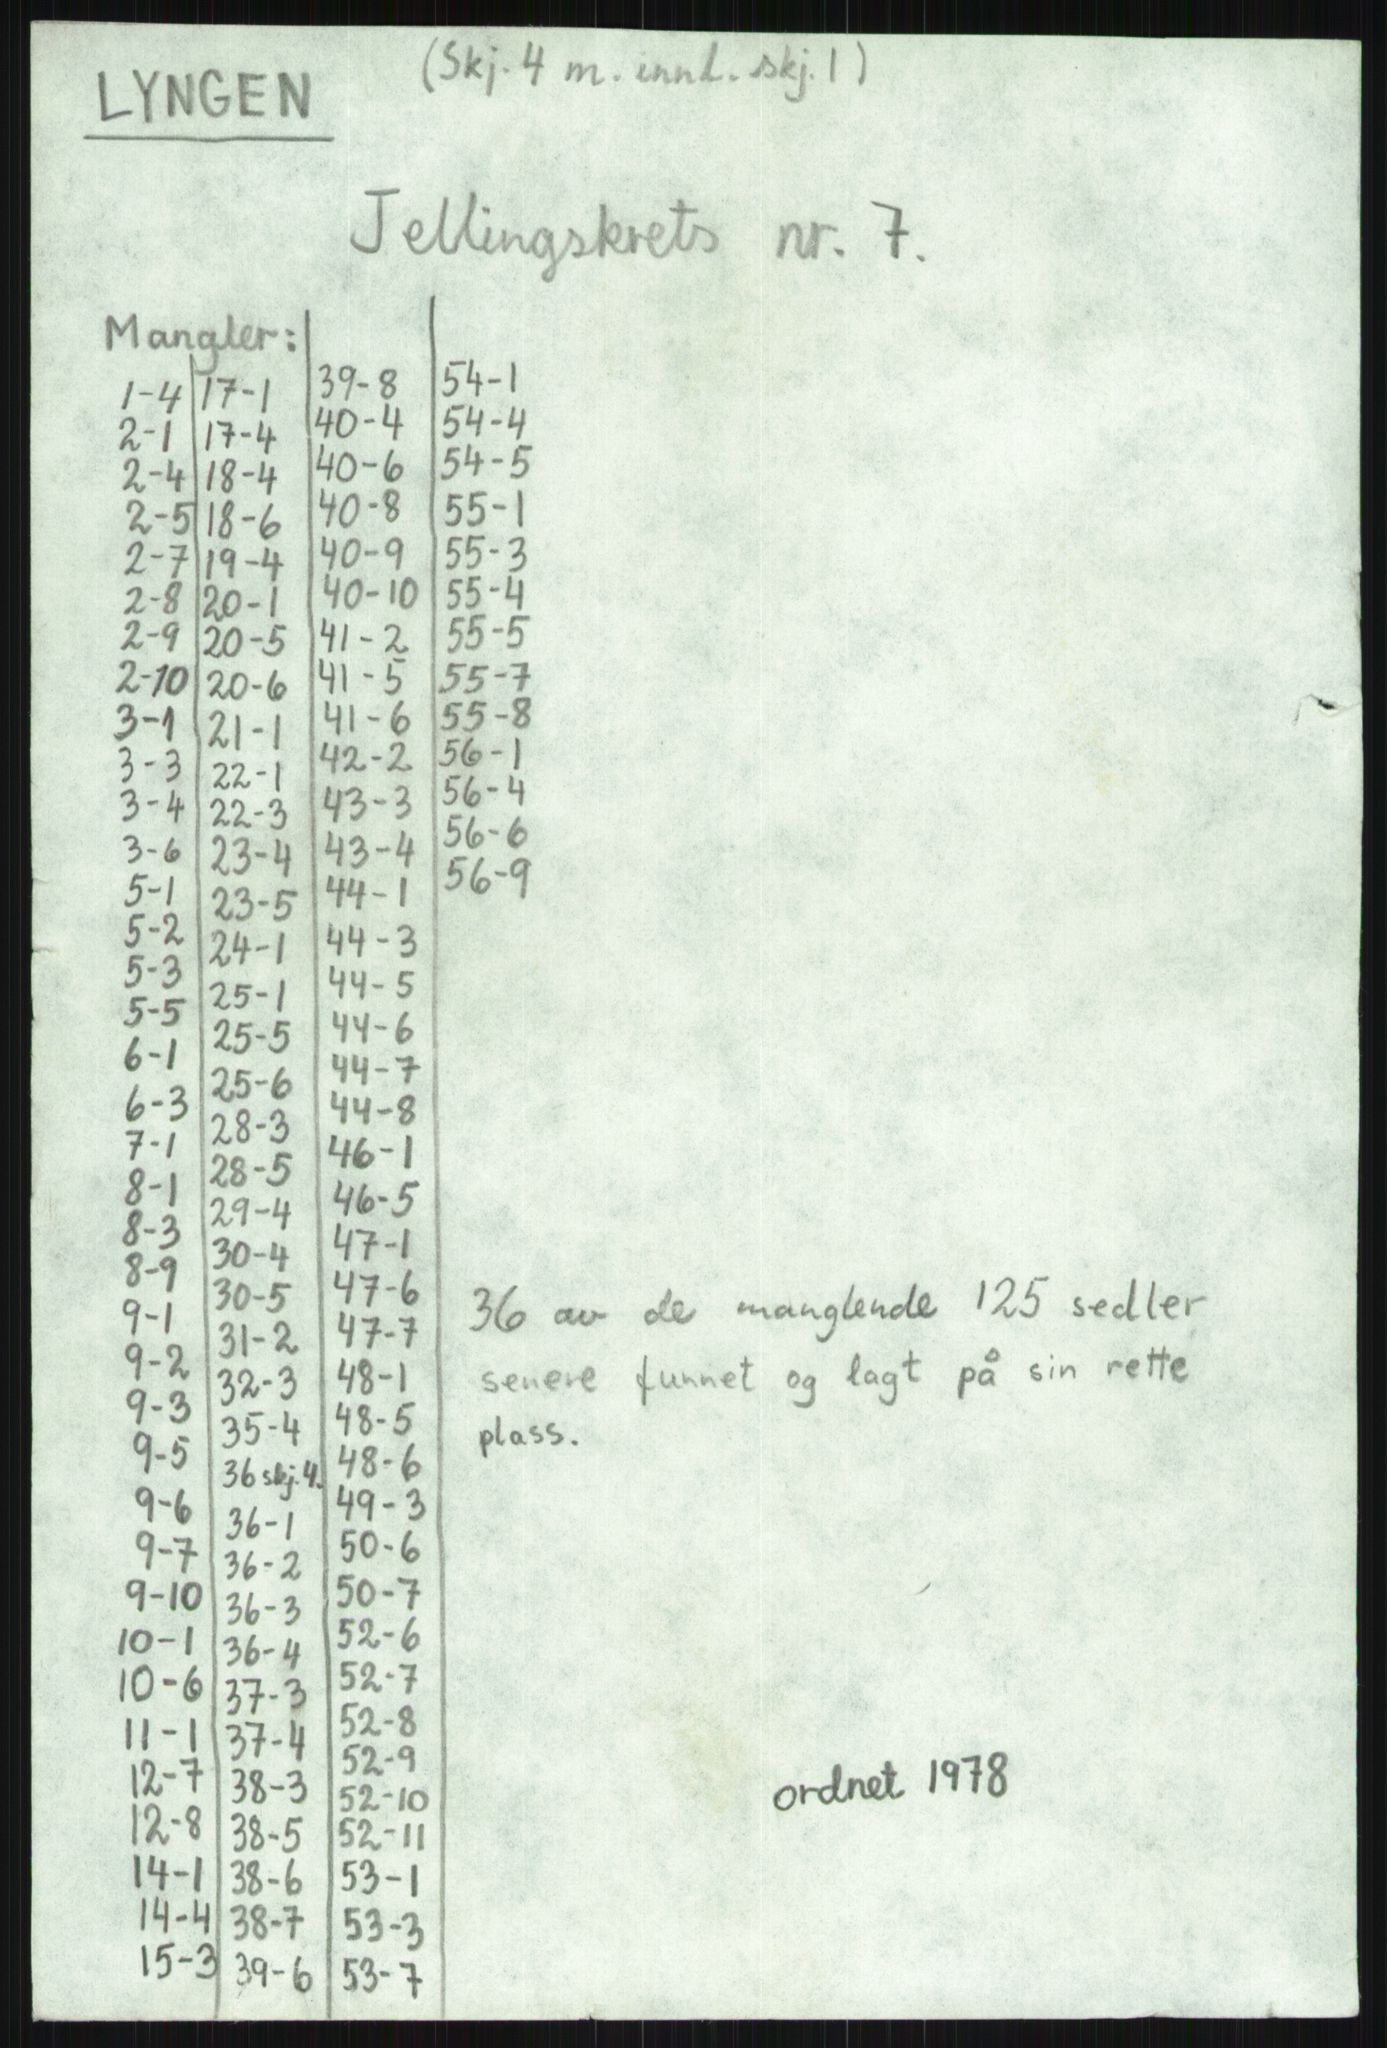 LYNGEN
(Skj. 4 m. innl. skj. 1)
Tellingskrets nr. 7.
Mangler:
1-4
2-1
2-4
2-5
2-7
2-8
2-9
2-10
3-1
3-3
3-4
3-6
5-1
5-2
5-3
5-5
6-1
6-3
7-1
8-1
8-3
8-9
9-1
9-2
9-3
9-5
9-6
9-7
9-10
10-1
10-6
11-1
12-7
12-8
14-1
14-4
15-3
17-1
17-4
18-4
18-6
19-4
20-1
20-5
20-6
21-1
22-1
22-3
23-4
23-5
24-1
25-1
25-5
25-6
28-3
28-5
29-4
30-4
30-5
31-2
32-3
35-4
36 skj. 4.
36-1
36-2
36-3
36-4
37-3
37-4
38-3
38-5
38-6
38-7
39-6
39-8
40-4
40-6
40-8
40-9
40-10
41-2
41-5
41-6
42-2
43-3
43-4
44-1
44-3
44-5
44-6
44-7
44-8
46-1
46-5
47-1
47-6
47-7
48-1
48-5
48-6
49-3
50-6
50-7
52-6
52-7
52-8
52-9
52-10
52-11
53-1
53-3
53-7
54-1
54-4
54-5
55-1
55-3
55-4
55-5
55-7
55-8
56-1
56-4
56-6
56-9
36 av de manglende 125 sedler
senere funnet og lagt på sin rette
plass.
ordnet 1978